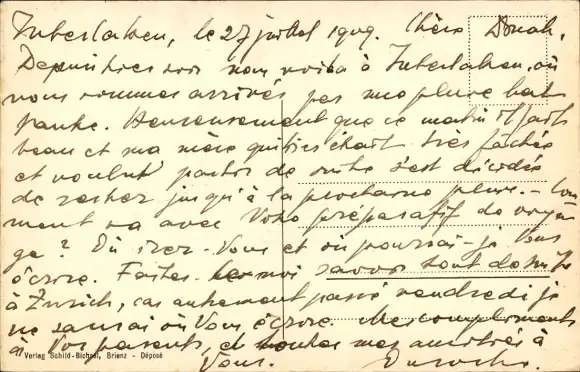 Interlaken, le 27 juillet 1909. Chère Donah,
Depuis hier soir nous voilà à Interlaken, où
nous sommes arrivés par une pluie bat
tante. Heureusement que ce matin il fait
beau et ma mère qui hier était très fâchée
et voulut partir de suite s'est décidée
de rester jusqu'à la prochaine pluie. – Com
ment va avec Votre préparatif de voya-
ge? Où irez-Vous et où pourrai-je Vous
écrire. Faites moi savoir tout de suite
à Zurich, car autrement passé vendredi je
ne saurai où Vous écrire. Mes compliments
à Vos parents, et toutes mes amitiés à
Vous.
Verlag Schild-Bichsel, Brienz - Déposé